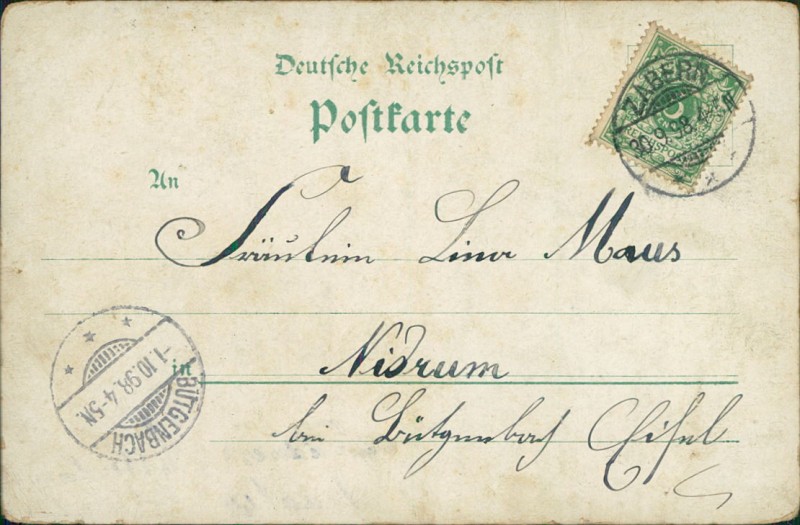 Deutsche Reichspost
Postkarte
ZABERN
9.98.
An
Fräulein Lina Maus
in Nidrum
bei Bütgenbach Eifel
-1.10.98. 4-5N.
BÜTGENBACH